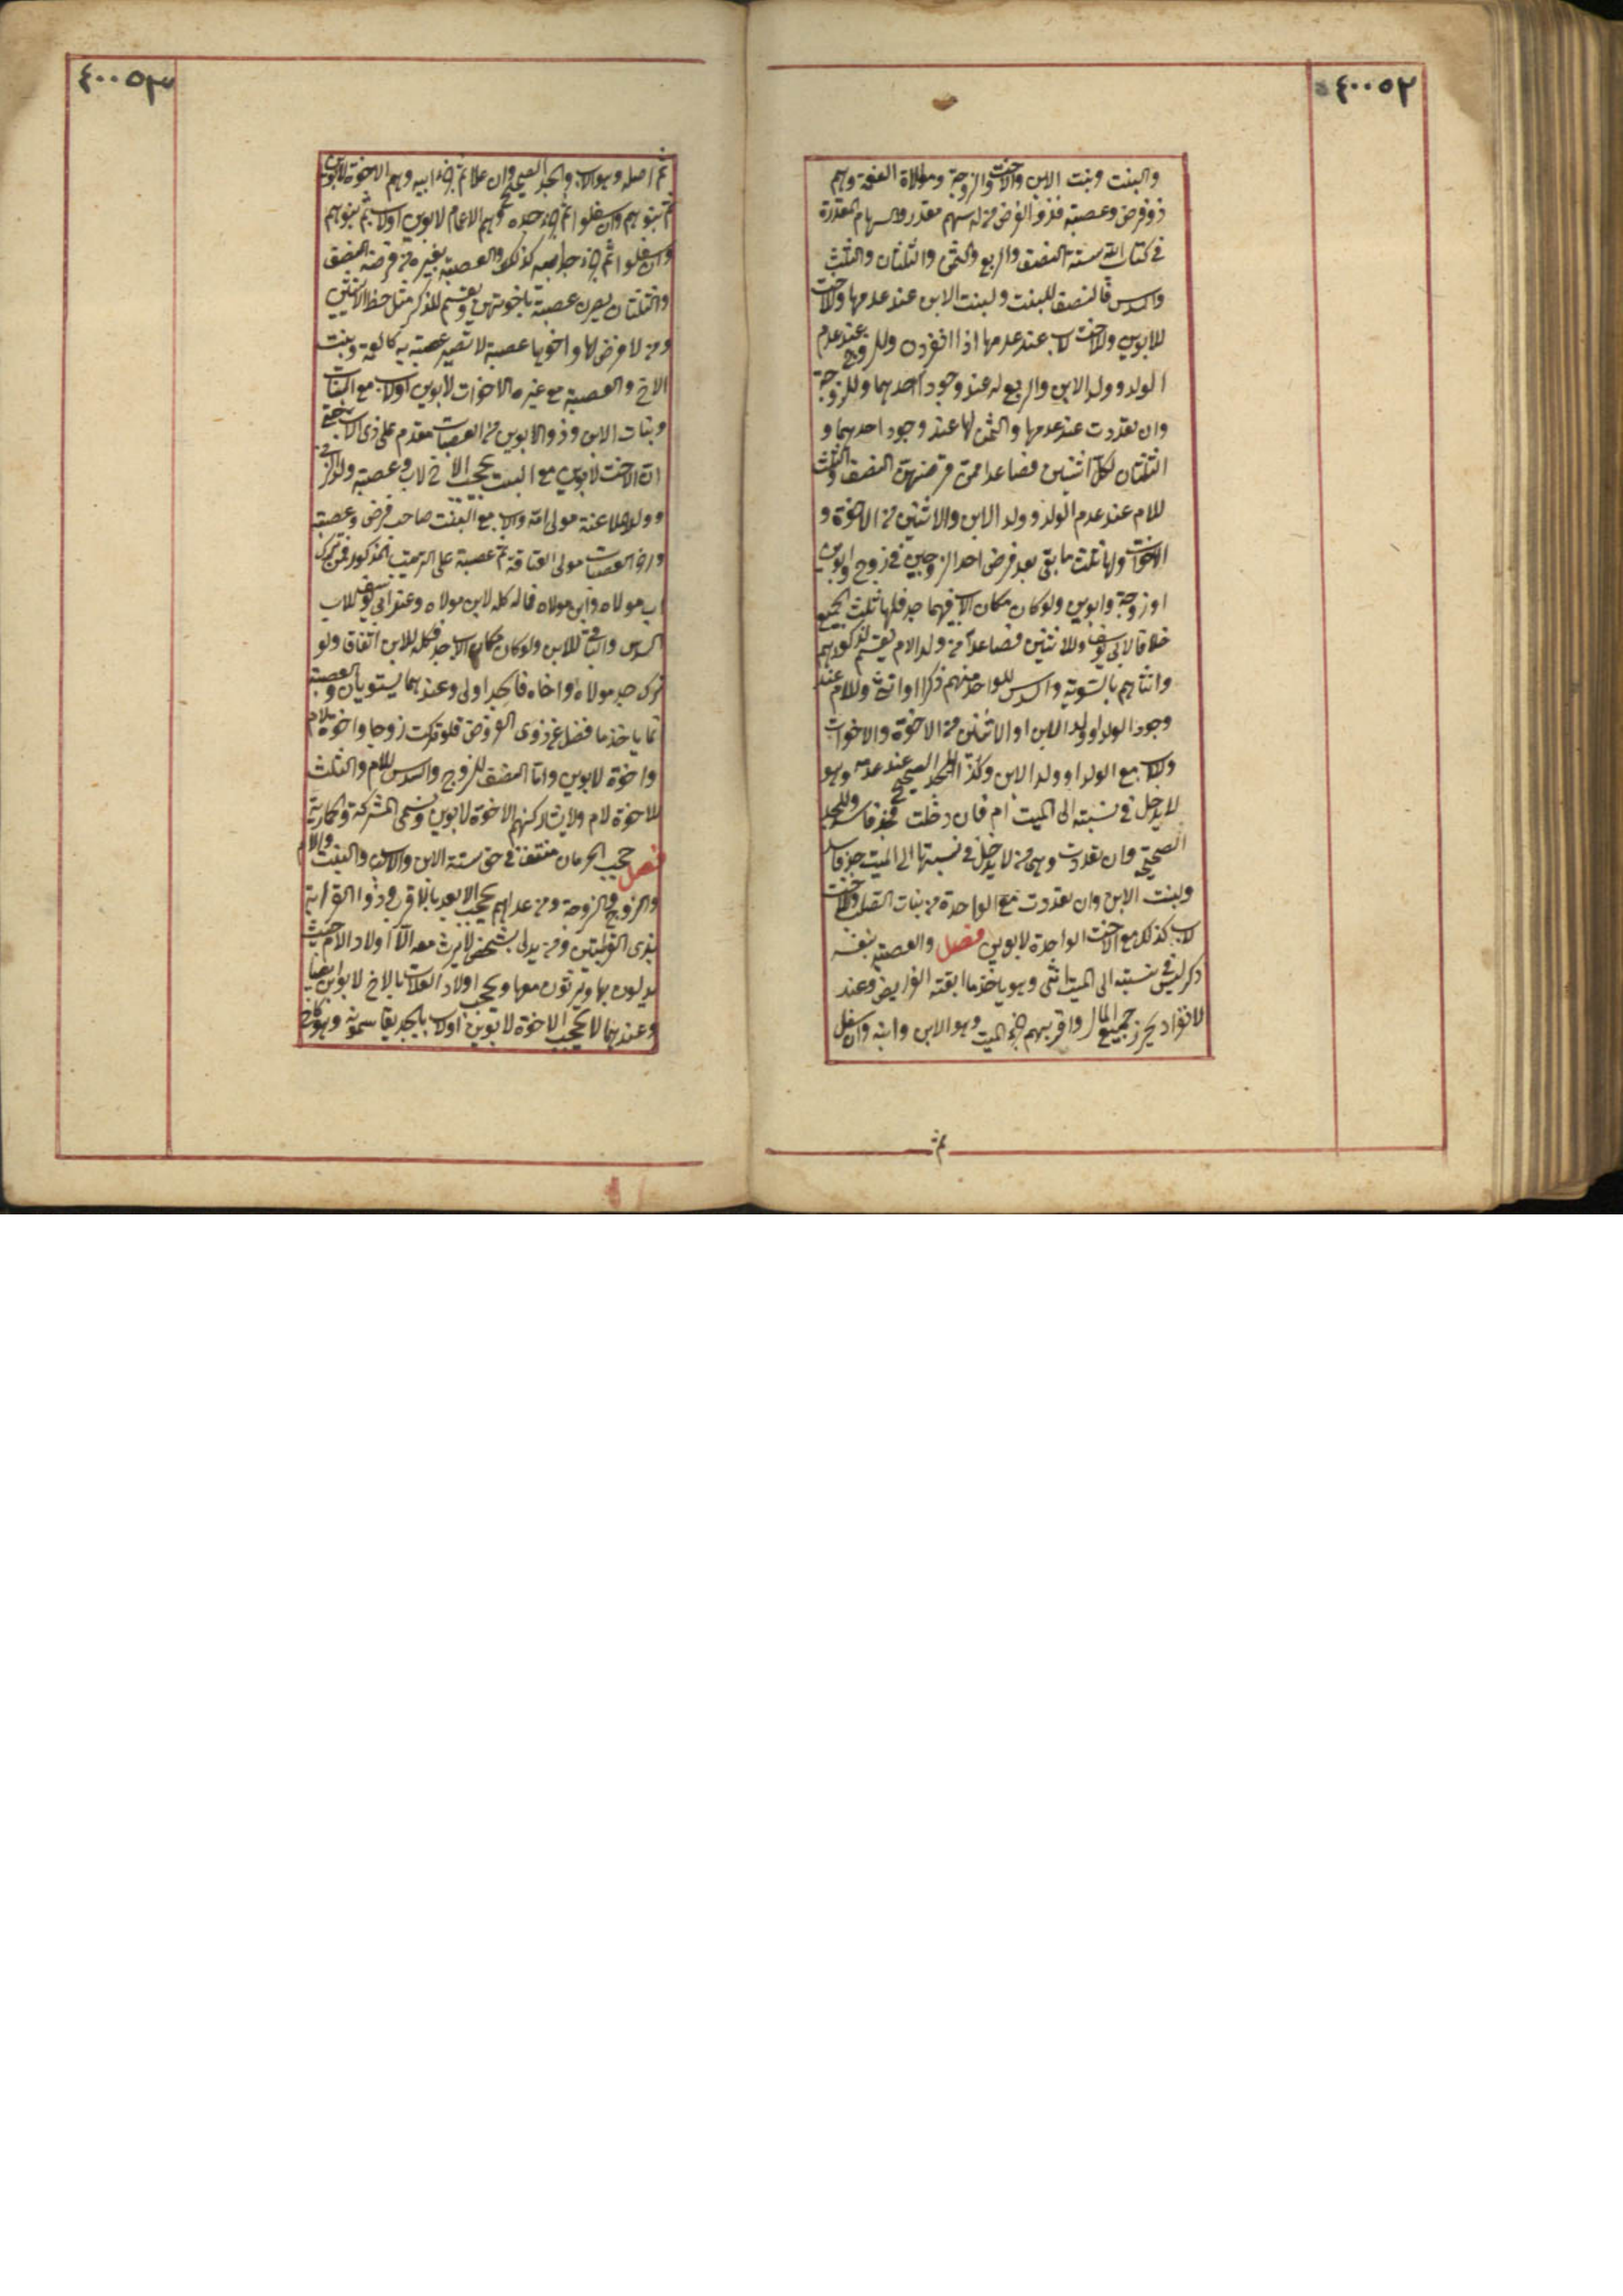 ٤٠٠٥٢
والبنت وبنت الابن والاخت والزوجة ومولاة النعمة وهم
ذو فرض وعصبة فذو الفرض من له سهم مقدر والسهام المقدرة
في كتاب الله ستة النصف والربع والثمن والثلثان والثلث
والسدس فالنصف للبنت ولبنت الابن عند عدمها وللاخت
للابوين وللاخت لاب عند عدمها اذا انفردن وللزوج عند عدم
الولد وولد الابن والربع له عند وجود احدهما وللزوجة
وان تعددت عند عدمها والثمن لها عند وجود احدهما و
الثلثان لكل اثنين فصاعدا ممن فرضهن النصف والثلث
للام عند عدم الولد وولد الابن والاثنين من الاخوة و
الاخوات ولها ثلث ما بقى بعد فرض احد الزوجين في زوج وابوين
او زوجة وابوين ولو كان مكان الاب فيهما جد فلها ثلث الجميع
خلافا لابى يوسف وللاثنين فصاعدا من ولد الام يقسم لذكورهم
واناثهم بالسوية والسدس للواحد منهم ذكرا او انثى وللام عند
وجود الولد او ولد الابن او الاثنين من الاخوة والاخوات
وللاب مع الولد او ولد الابن وكذا للجد الصحيح عند عدمه وهو
لا يدخل في نسبته الى الميت ام فان دخلت فجد فاسد وللجدة
الصحيحة وان تعددت وهى من لا يدخل في نسبتها الى الميت جد فاسد
ولبنت الابن وان تعددت مع الواحدة من بنات الصلب وللاخت
لاب كذلك مع الاخت الواحدة لابوين فصل والعصبة بنفسه
ذكر ليس في نسبته الى الميت انثى وهو ياخذ ما ابقته الفرايض وعند
الانفراد يحرز جميع المال واقربهم جزء الميت وهو الابن وابنه وان سفل
ثم
٤٠٠٥٣
ثم اصله وهو الاب والجد الصحيح وان علا ثم جزء ابيه وهم الاخوة لابوين
ثم بنوهم وان سفلوا ثم جزء جده وهم الاعمام لابوين او لاب ثم بنوهم
وان سفلوا ثم جزء جد ابيه كذلك والعصبة بغيره من فرضه النصف
والثلثان يصرن عصبة باخوتهن ويقسم للذكر مثل حظ الانثيين
ومن لا فرض لها واخوها عصبة لا تصير عصبة به كالعمة وبنت
الاخ والعصبة مع غيره الاخوات لابوين او لاب مع البنات
وبنات الابن وذو الابوين من العصبات مقدم على ذى الاب حتى
ان الاخت لابوين مع البنت تحجب الاخ لاب وعصبة ولد الزنى
وولد الملاعنة مولى امه والاب مع البنت صاحب فرض وعصبة
واخر العصبات مولى العتاقة ثم عصبته على الترتيب المذكور فمن ترك
اب مولاه وابن مولاه فماله كله لابن مولاه وعند ابى يوسف للاب
السدس والباقى للابن ولو كان مكان الاب جد فكله للابن اتفاقا ولو
ترك جد مولاه واخاه فالجد اولى وعندهما يستويان والعصبة
انما ياخذ ما فضل عن ذوى الفروض فلو تركت زوجا واخوة لام
واخوة لابوين واما النصف للزوج والسدس للام والثلث
للاخوة لام ولا يشاركهم الاخوة لابوين وتسمى المشركة والحمارية
فصل حجب الحرمان منتف في حق ستة الابن والاب والبنت والام
والزوج والزوجة ومن عداهم يحجب الابعد بالاقرب وذوا القرابة
بذى القرابتين ومن يدلى بشخص لا يرث معه الا اولاد الام حيث
يدلون بها ويرثون معها ويحجب اولاد العلات بالاخ لابوين ايضا
وعندهما لا يحجب الاخوة لابوين او لاب بالجد بل يقاسمونه وهو كاخ